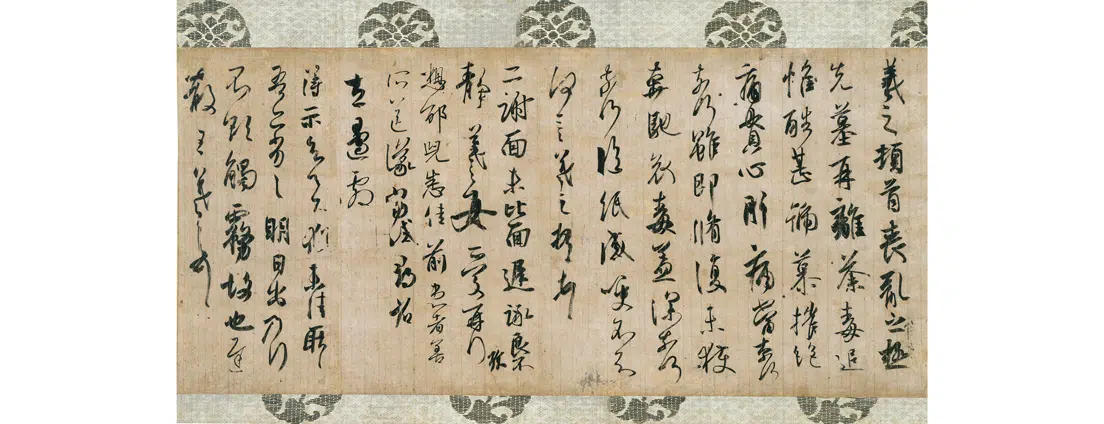 羲之頓首喪亂之極
先墓再離荼毒追
惟酷甚號慕摧絕
痛貫心肝痛當柰何
柰何雖即脩復未獲
奔馳哀毒益深柰何
柰何臨紙感哽不知
何言羲之頓首頓首
二謝面未比面遲詠良不
靜羲之女愛再拜
想邰兒悉佳前患者善
所送議當試尋省
左邊劇
得示知足下猶未佳耿耿
吾亦劣劣明日出乃行
不欲觸霧故也遲
散王羲之頓首